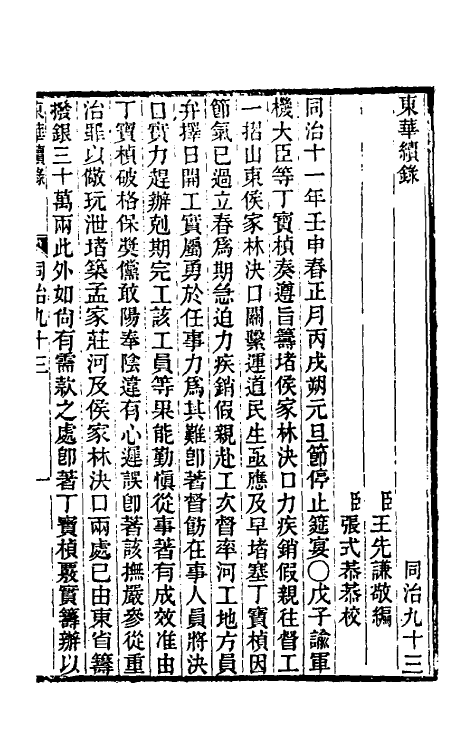 東華續錄　同治九十三
臣王先謙敬編
臣張式恭恭校
同治十一年壬申春正月丙戌朔元旦節停止筵宴〇戊子諭軍
機大臣等丁寶楨奏遵旨籌堵侯家林決口力疾銷假親往督工
一摺山東侯家林決口關繫運道民生亟應及早堵塞丁寶楨因
節氣已過立春爲期急迫力疾銷假親赴工次督率河工地方員
弁擇日開工實屬勇於任事力爲其難卽著督飭在事人員將決
口實力趕辦剋期完工該工員等果能勤愼從事著有成效准由
丁寶楨破格保奬儻敢陽奉陰違有心遲誤卽著該撫嚴參從重
治罪以儆玩泄堵築孟家莊河及侯家林決口兩處已由東省籌
撥銀三十萬兩此外如尙有需款之處卽著丁寶楨覈實籌辦以
東華續錄　同治九十三　一